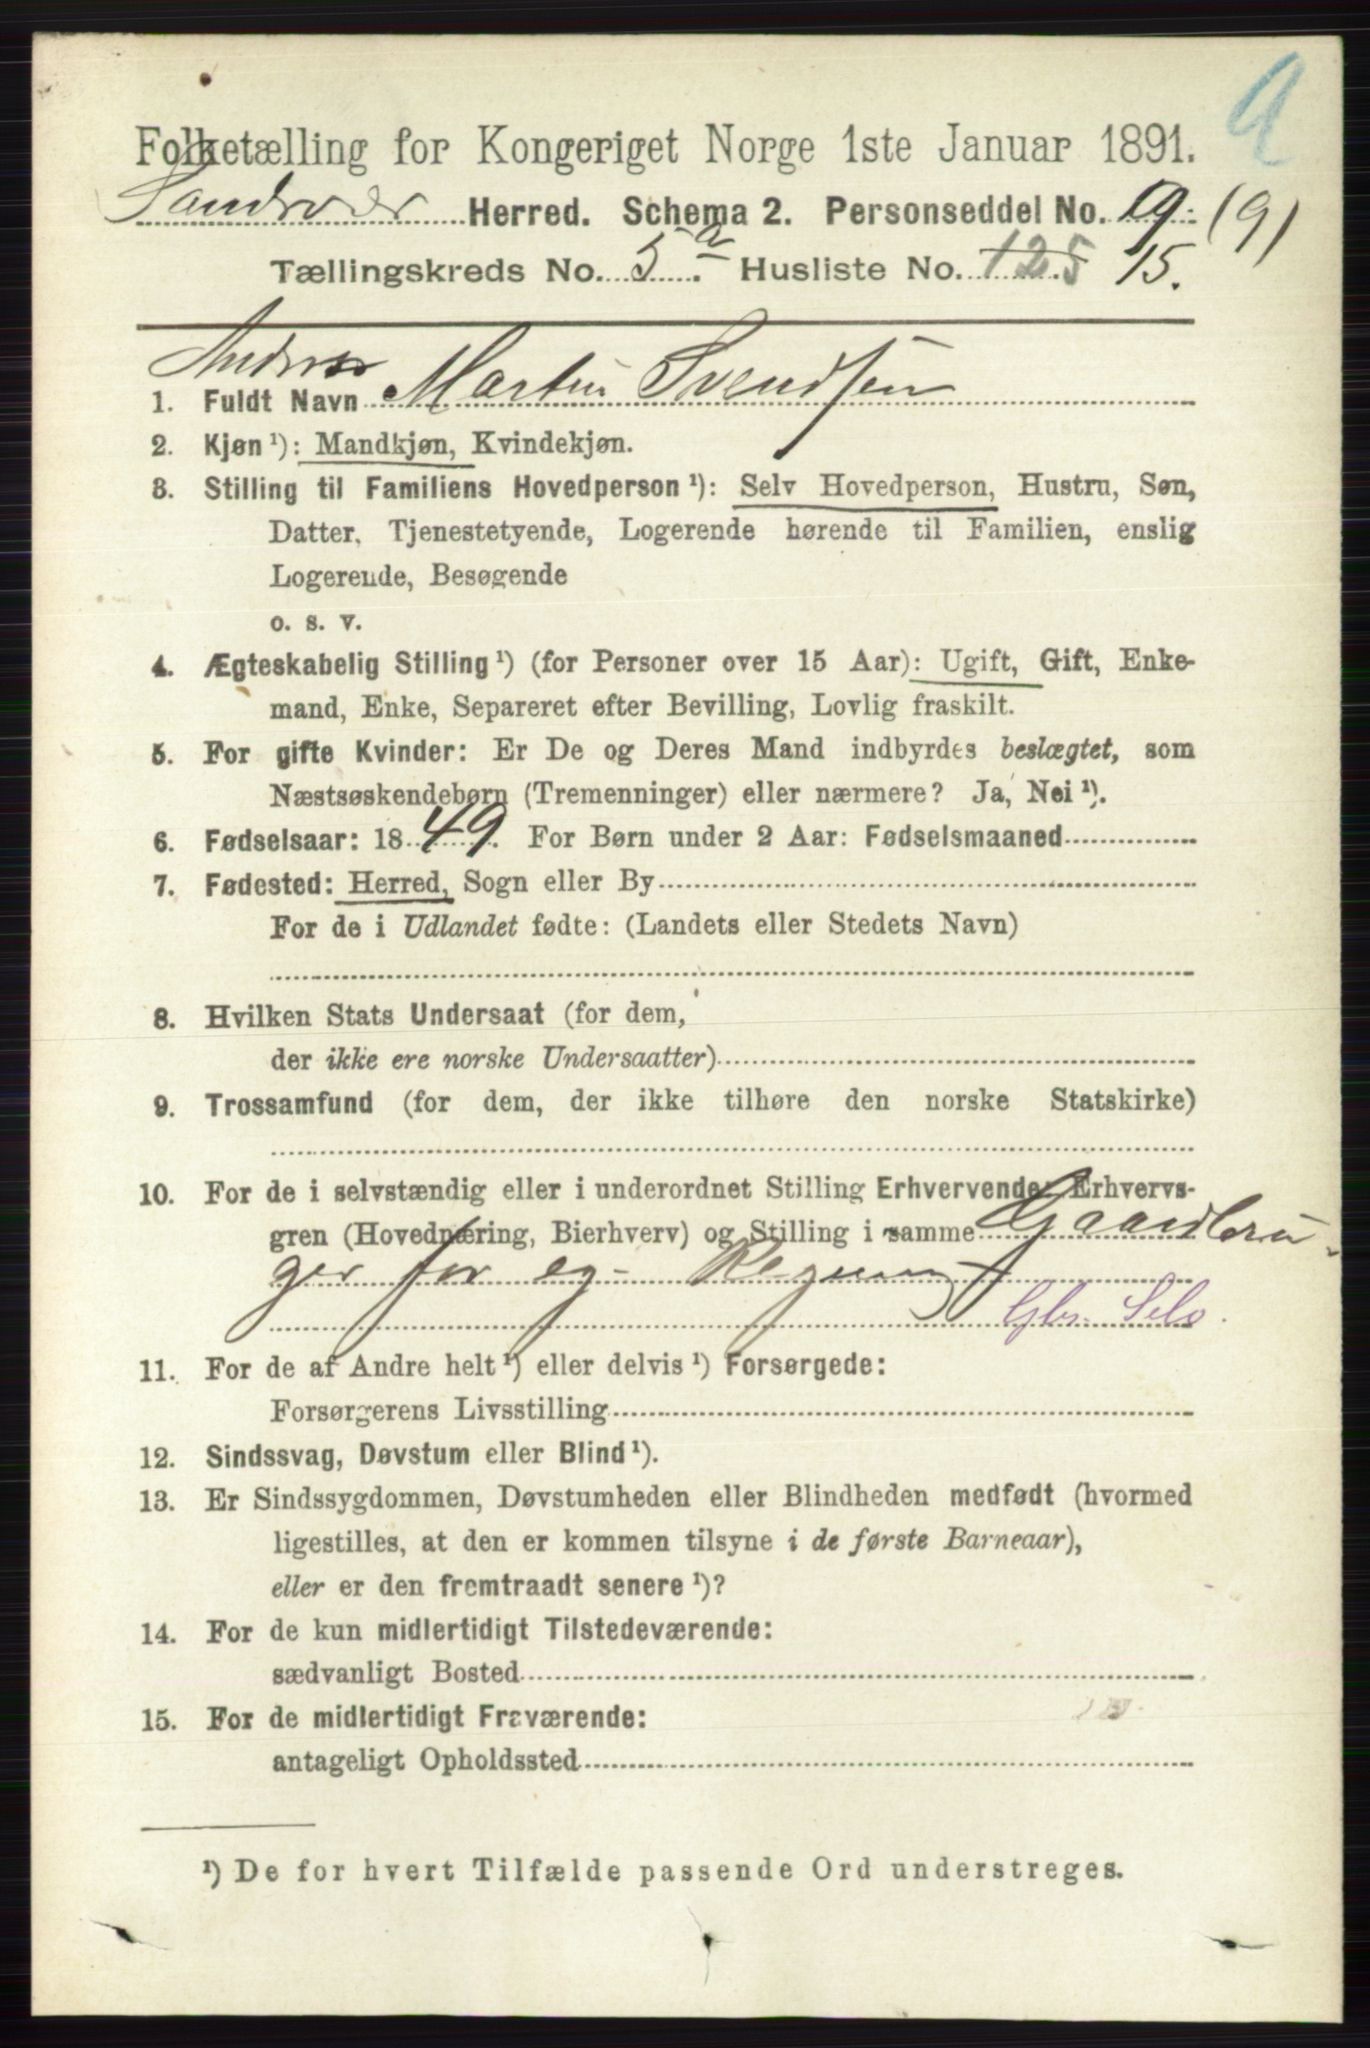 9
Folketælling for Kongeriget Norge 1ste Januar 1891.
Herred. Schema 2. Personseddel No. 9 (9)
Tællingskreds No. 5 a. Husliste No. 125 15.
Andreas
1. Fuldt Navn Martin Svendsen
2. Kjøn ¹): Mandkjøn, Kvindekjøn.
3. Stilling til Familiens Hovedperson ¹): Selv Hovedperson, Hustru, Søn,
Datter, Tjenestetyende, Logerende hørende til Familien, enslig
Logerende, Besøgende
o. s. v.
4. Ægteskabelig Stilling ¹) (for Personer over 15 Aar): Ugift, Gift, Enke-
mand, Enke, Separeret efter Bevilling, Lovlig fraskilt.
5. For gifte Kvinder: Er De og Deres Mand indbyrdes beslægtet, som
Næstsøskendebørn (Tremenninger) eller nærmere? Ja, Nei ¹).
6. Fødselsaar: 1849. For Børn under 2 Aar: Fødselsmaaned
7. Fødested: Herred, Sogn eller By
For de i Udlandet fødte: (Landets eller Stedets Navn)
8. Hvilken Stats Undersaat (for dem,
der ikke ere norske Undersaatter)
9. Trossamfund (for dem, der ikke tilhøre den norske Statskirke)
10. For de i selvstændig eller i underordnet Stilling Erhvervende: Erhvervs-
gren (Hovednæring, Bierhverv) og Stilling i samme Gaardbru-
ger for eg. Regning
Gbr. Selv.
11. For de af Andre helt ¹) eller delvis ¹) Forsørgede:
Forsørgerens Livsstilling
12. Sindssvag, Døvstum eller Blind ¹).
13. Er Sindssygdommen, Døvstumheden eller Blindheden medfødt (hvormed
ligestilles, at den er kommen tilsyne i de første Barneaar),
eller er den fremtraadt senere ¹)?
14. For de kun midlertidigt Tilstedeværende:
sædvanligt Bosted
15. For de midlertidigt Fraværende:
antageligt Opholdssted
¹) De for hvert Tilfælde passende Ord understreges.